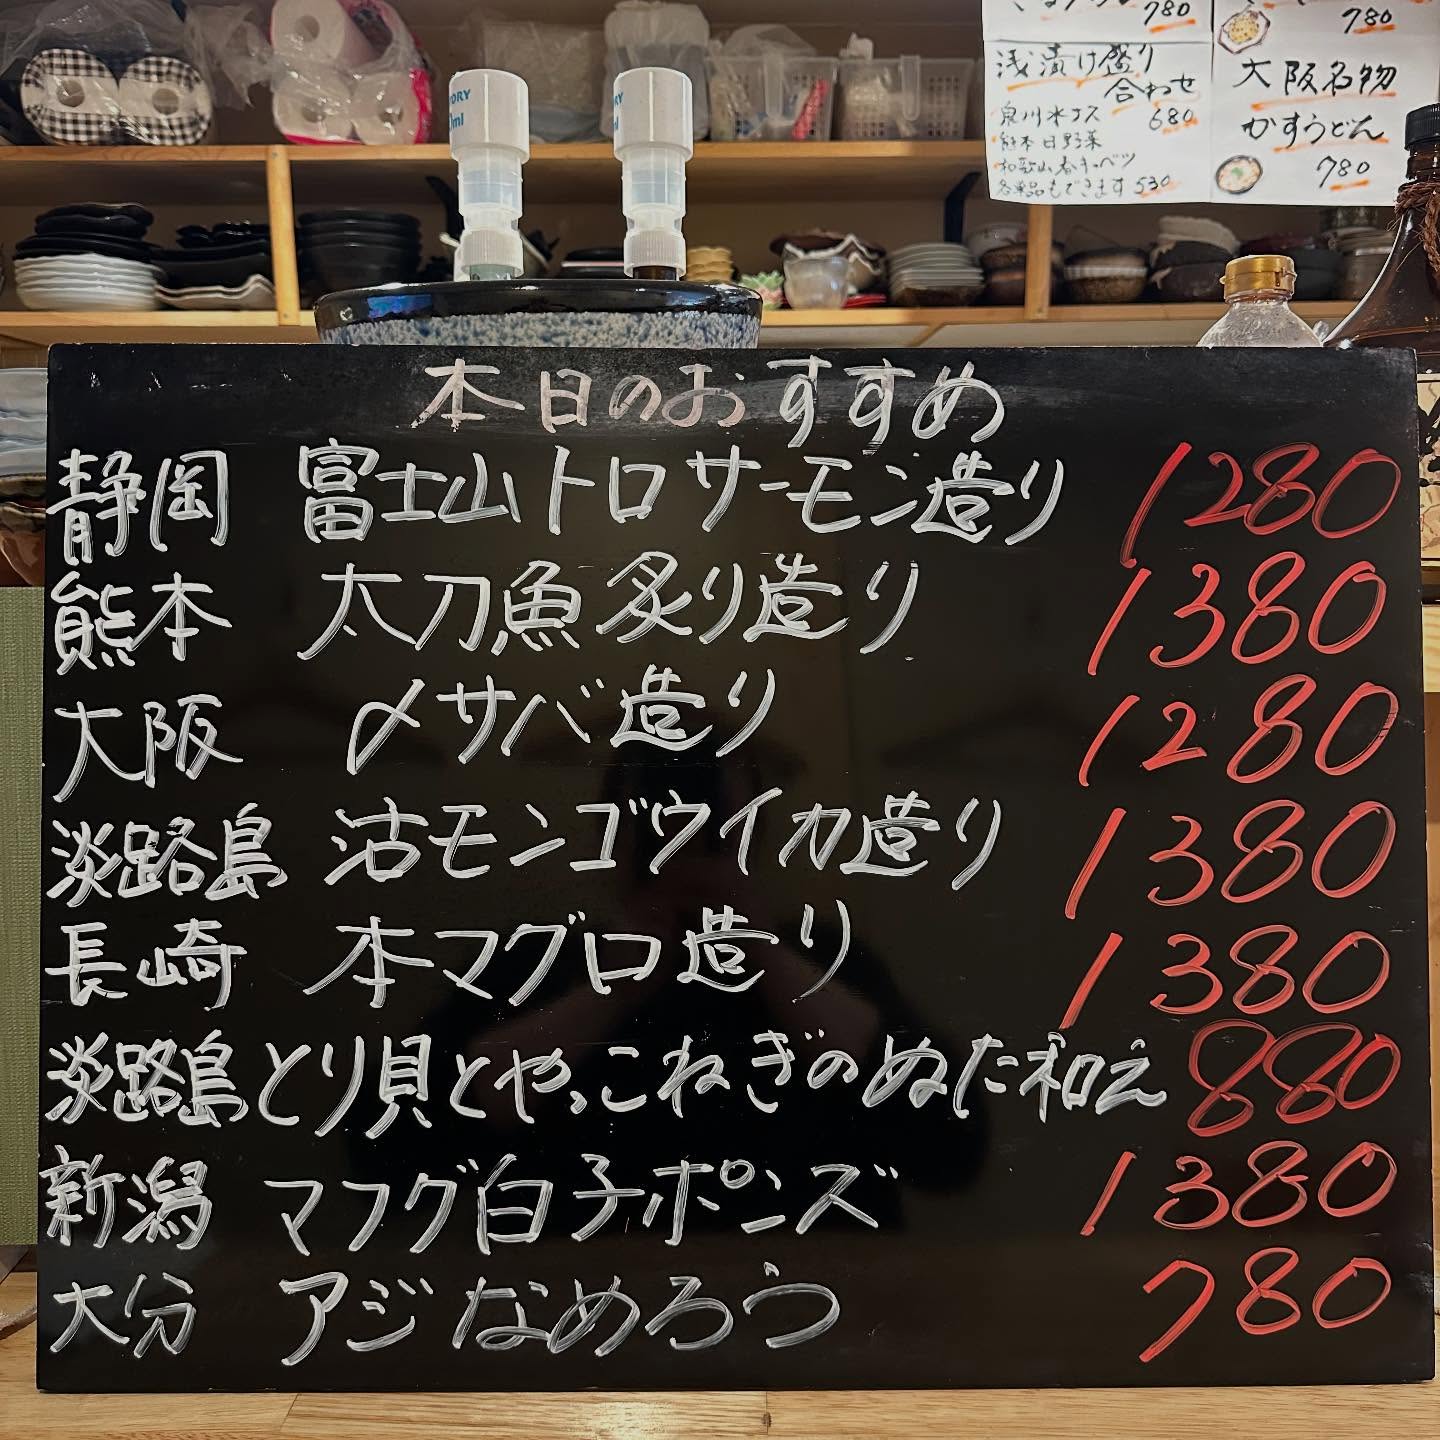 780
浅漬け盛り
合わせ
泉州水ナス 680
・熊本 日野菜
・和歌山 春キャベツ
各単品もできます 530
780
大阪名物
かすうどん
780
本日のおすすめ
静岡 富士山トロサーモン造り 1280
熊本 太刀魚炙り造り 1380
大阪 〆サバ造り 1280
淡路島 活モンゴウイカ造り 1380
長崎 本マグロ造り 1380
淡路島とり貝とやっこねぎのぬた和え 880
新潟 マフグ白子ポンズ 1380
大分 アジなめろう 780